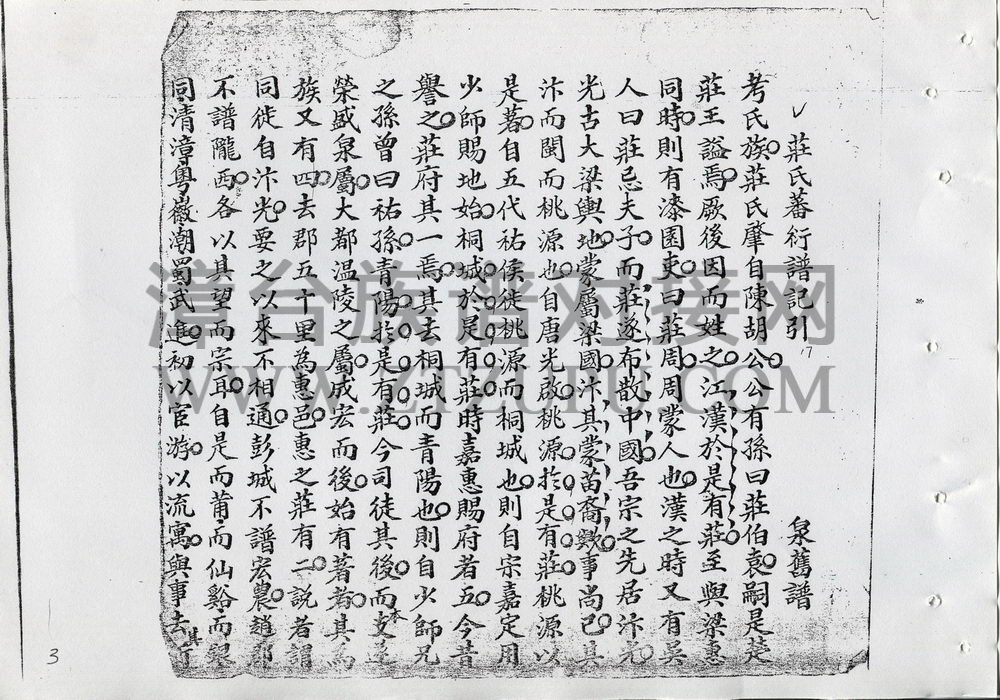 莊氏蕃衍譜記引 泉舊譜
考氏族莊氏肇自陳胡公公有孫曰莊伯袁嗣是楚
莊王謚焉厥後因而姓之江漢於是有莊至與梁惠
同時則有漆園吏曰莊周周蒙人也漢之時又有吳
人曰莊忌夫子而莊遂布散中國吾宗之先居汴光
光古大梁輿地蒙屬梁國汴其蒙苗裔歟事尚已其
汴而閩而桃源也自唐光啟桃源於是有莊桃源以
是著自五代祐侯徙桃源而桐城也則自宗嘉定用
少師賜地始桐城於是有莊時嘉惠賜府者五今昔
譽之莊府其一焉其去桐城而青陽也則自少師兄
之孫曾曰祐孫青陽於是有莊今司徒其後而支
榮盛泉屬大都温陵之屬成宏而後始有著者其為
族又有四去郡五十里為惠邑惠之莊有二説者謂
同徙自汴光要之以來不相通彭城不譜宏農趙郡
不譜隴西各以其望而宗耳自是而莆而仙谿而銀
同清漳粵嶶潮蜀武進初以宦游以流寓與事去
漳台族谱对接网
WWW.ZTZUPU.COM
17
3